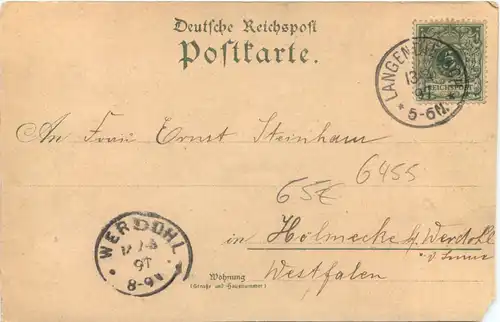 Deutsche Reichspost
Postkarte.
REICHSPOST
LANGEN
5-6N.
An Frau Ernst Steinham
6455
65€
WERDOHL
97
8-9V
in Holmecke b/ Werdohl
Wohnung
(Straße und Hausnummer)
Westfalen